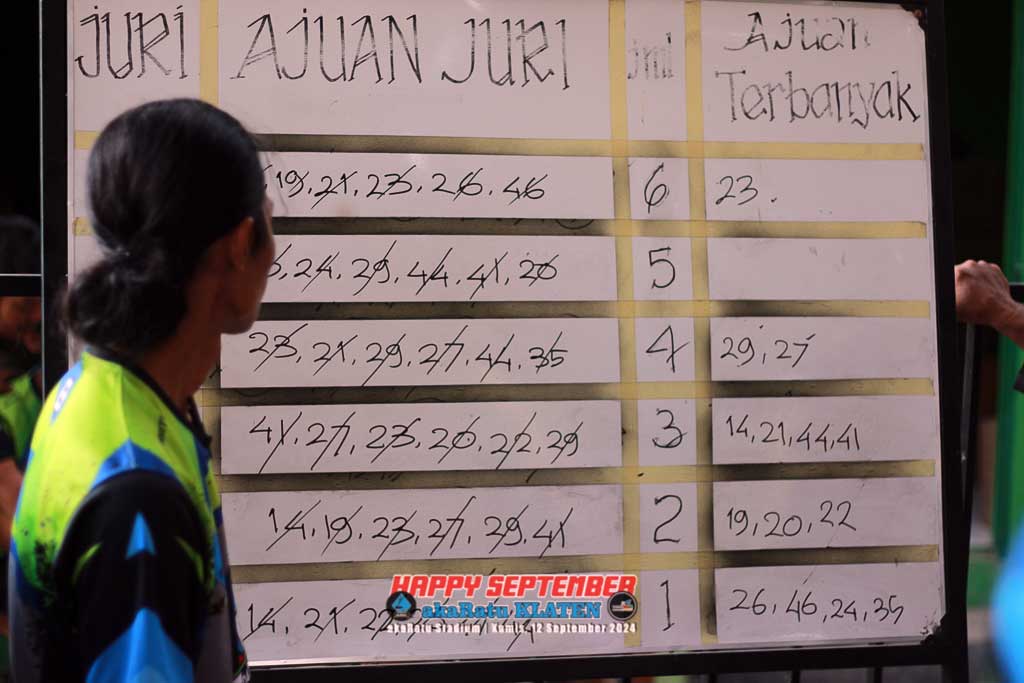 JURI AJUAN JURI jml Ajuan
Terbanyak
19. 21. 23. 26. 46 6 23.
24. 29. 44. 41. 20 5
23. 21. 29. 27. 44. 35 4 29, 27
41. 27. 23. 20. 22. 29 3 14, 21, 44, 41
14. 19. 23. 27. 29. 41 2 19, 20, 22
14. 21. 1 26, 46, 24, 35
HAPPY SEPTEMBER
akaRatu KLATEN
akaRatu Stadium | Kamis, 12 September 2024